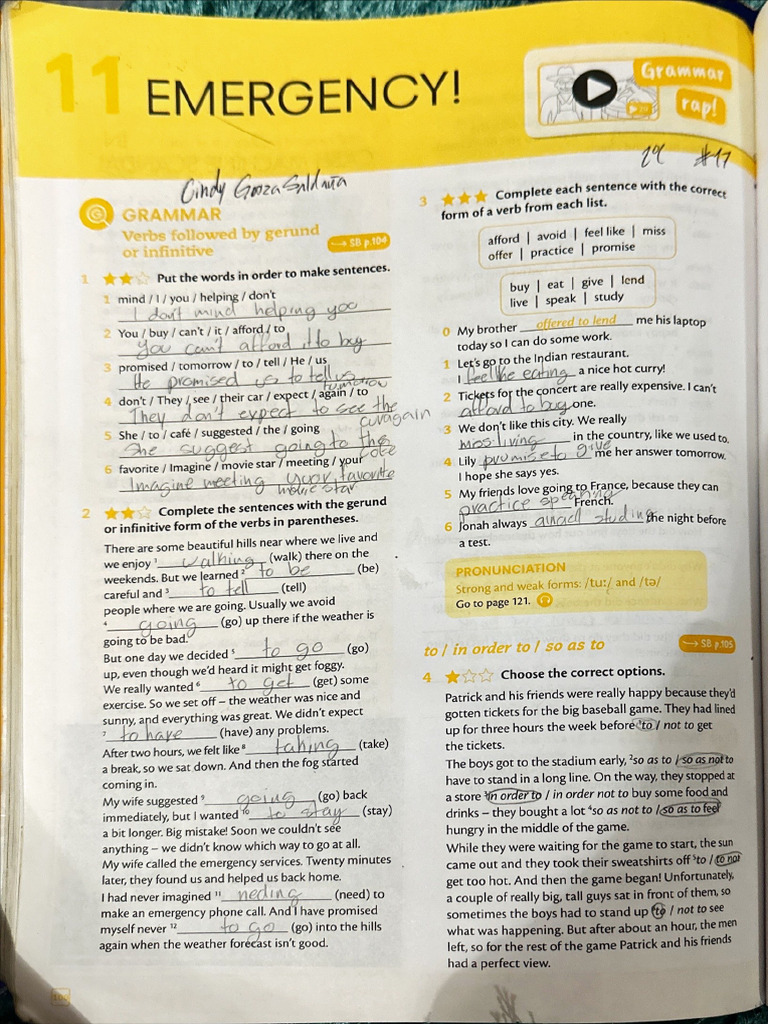 11 EMERGENCY!
Grammar
rap!
#17
Cindy Garza Saldaña
GRAMMAR
Verbs followed by gerund
or infinitive
→ SB p.104
1 ★★☆ Put the words in order to make sentences.
1 mind / I / you / helping / don't
I don't mind helping you
2 You / buy / can't / it / afford / to
You can't afford it to buy
3 promised / tomorrow / to / tell / He / us
He promised us to tell us
tomorrow
4 don't / They / see / their car / expect / again / to
They don't expect to see the
car again
5 She / to / café / suggested / the / going
She suggest going to the
cafe
6 favorite / Imagine / movie star / meeting / your
Imagine meeting your favorite
movie star
2 ★★☆ Complete the sentences with the gerund
or infinitive form of the verbs in parentheses.
There are some beautiful hills near where we live and
we enjoy 1 walking (walk) there on the
weekends. But we learned 2 to be (be)
careful and 3 to tell (tell)
people where we are going. Usually we avoid
4 going (go) up there if the weather is
going to be bad.
But one day we decided 5 to go (go)
up, even though we'd heard it might get foggy.
We really wanted 6 to get (get) some
exercise. So we set off – the weather was nice and
sunny, and everything was great. We didn't expect
7 to have (have) any problems.
After two hours, we felt like 8 taking (take)
a break, so we sat down. And then the fog started
coming in.
My wife suggested 9 going (go) back
immediately, but I wanted 10 to stay (stay)
a bit longer. Big mistake! Soon we couldn't see
anything – we didn't know which way to go at all.
My wife called the emergency services. Twenty minutes
later, they found us and helped us back home.
I had never imagined 11 neding (need) to
make an emergency phone call. And I have promised
myself never 12 to go (go) into the hills
again when the weather forecast isn't good.
100
3 ★★★ Complete each sentence with the correct
form of a verb from each list.
afford | avoid | feel like | miss
offer | practice | promise
buy | eat | give | lend
live | speak | study
0 My brother offered to lend me his laptop
today so I can do some work.
1 Let's go to the Indian restaurant.
I feel like eating a nice hot curry!
2 Tickets for the concert are really expensive. I can't
afford to buy one.
3 We don't like this city. We really
miss living in the country, like we used to.
4 Lily promise to give me her answer tomorrow.
I hope she says yes.
5 My friends love going to France, because they can
practice speaking French.
6 Jonah always studing the night before
a test.
PRONUNCIATION
Strong and weak forms: /tuː/ and /tə/
Go to page 121.
to / in order to / so as to
→ SB p.105
4 ★☆☆ Choose the correct options.
Patrick and his friends were really happy because they'd
gotten tickets for the big baseball game. They had lined
up for three hours the week before 1to / not to get
the tickets.
The boys got to the stadium early, 2so as to / so as not to
have to stand in a long line. On the way, they stopped at
a store 3in order to / in order not to buy some food and
drinks – they bought a lot 4so as not to / so as to feel
hungry in the middle of the game.
While they were waiting for the game to start, the sun
came out and they took their sweatshirts off 5to / to not
get too hot. And then the game began! Unfortunately,
a couple of really big, tall guys sat in front of them, so
sometimes the boys had to stand up 6to / not to see
what was happening. But after about an hour, the men
left, so for the rest of the game Patrick and his friends
had a perfect view.